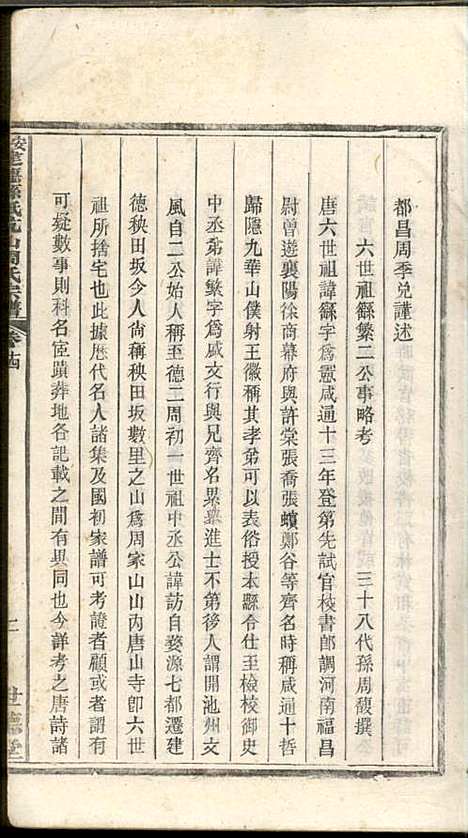 都昌周季兌謹述
六世祖繇繁二公事略考　三十八代孫周馥撰
唐六世祖諱繇字爲憲咸通十三年登第先試官校書郎調河南福昌
尉曾遊襄陽徐商幕府與許棠張喬張蠙鄭谷等齊名時稱咸通十哲
歸隱九華山僕射王徽稱其孝弟可以表俗授本縣令仕至檢校御史
中丞弟諱繁字爲成文行與兄齊名累舉進士不第後人謂開池州文
風自二公始人稱至德二周初一世祖中丞公諱訪自婺源七都遷建
德秧田坂今人尙稱秧田坂數里之山爲周家山山內唐山寺卽六世
祖所捨宅也此據歷代名人諸集及國初家譜可考證者顧或者謂有
可疑數事則科名宦蹟葬地各記載之間有異同也今詳考之唐詩諸
周氏宗譜
卷十四
二
世德堂